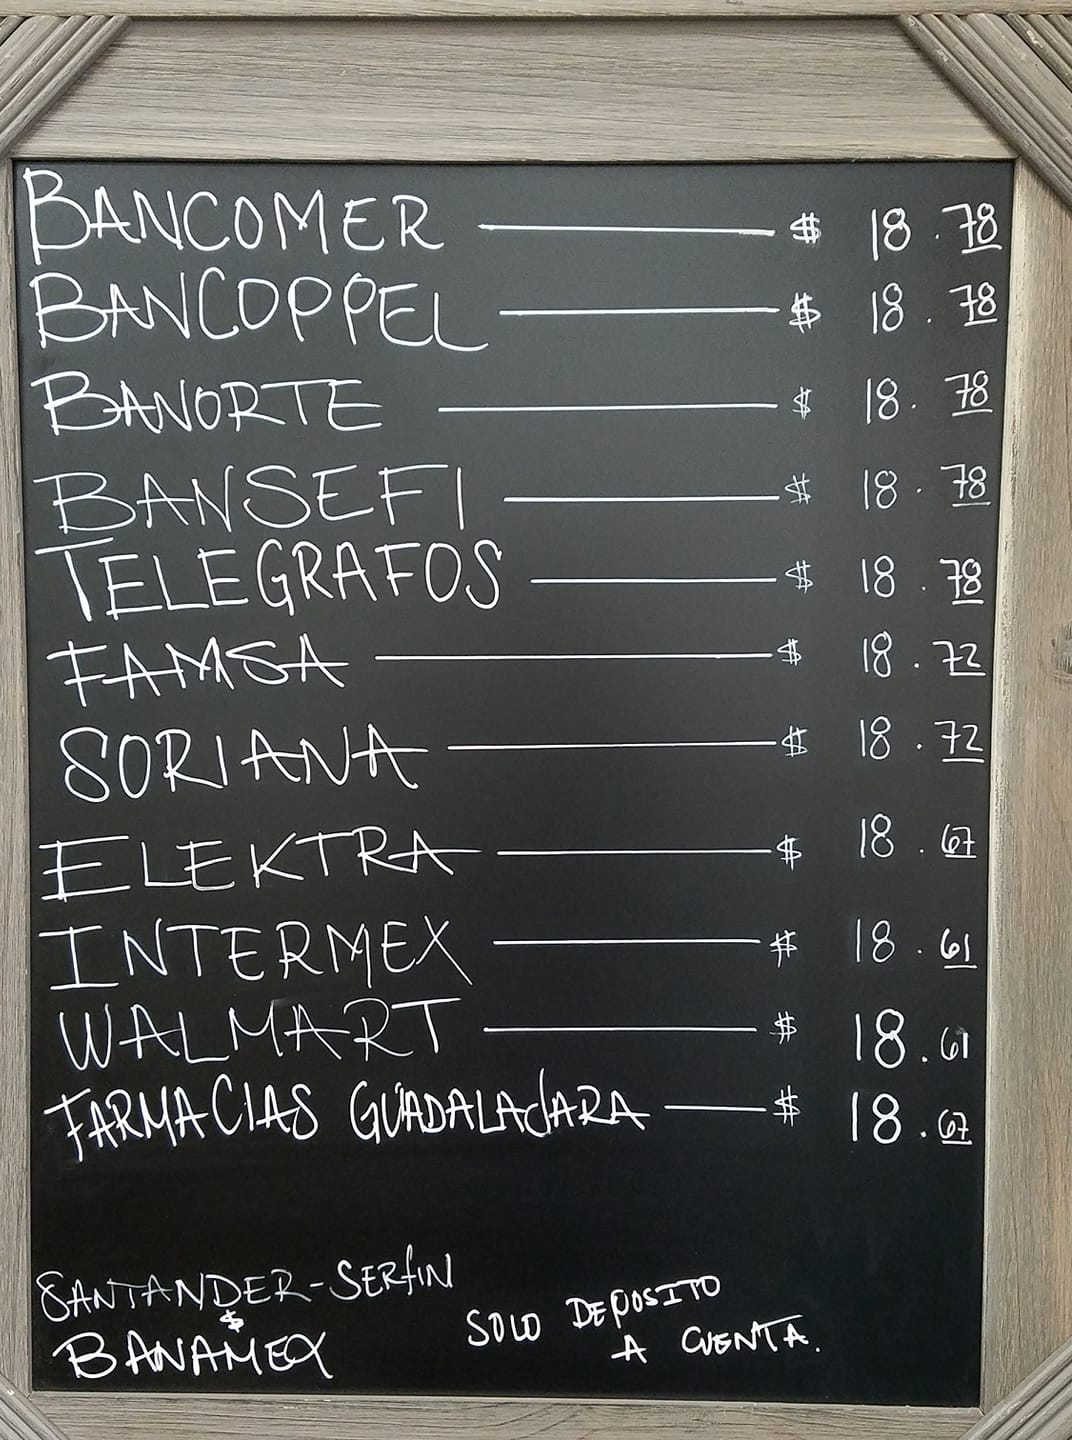 BANCOMER $ 18.78
BANCOPPEL $ 18.78
BANORTE $ 18.78
BANSEFI $ 18.78
TELEGRAFOS $ 18.78
FAMSA $ 18.72
SORIANA $ 18.72
ELEKTRA $ 18.67
INTERMEX $ 18.61
WALMART $ 18.61
FARMACIAS GUADALAJARA $ 18.67
SANTANDER-SERFIN
$
BANAMEX
SOLO DEPOSITO
A CUENTA.